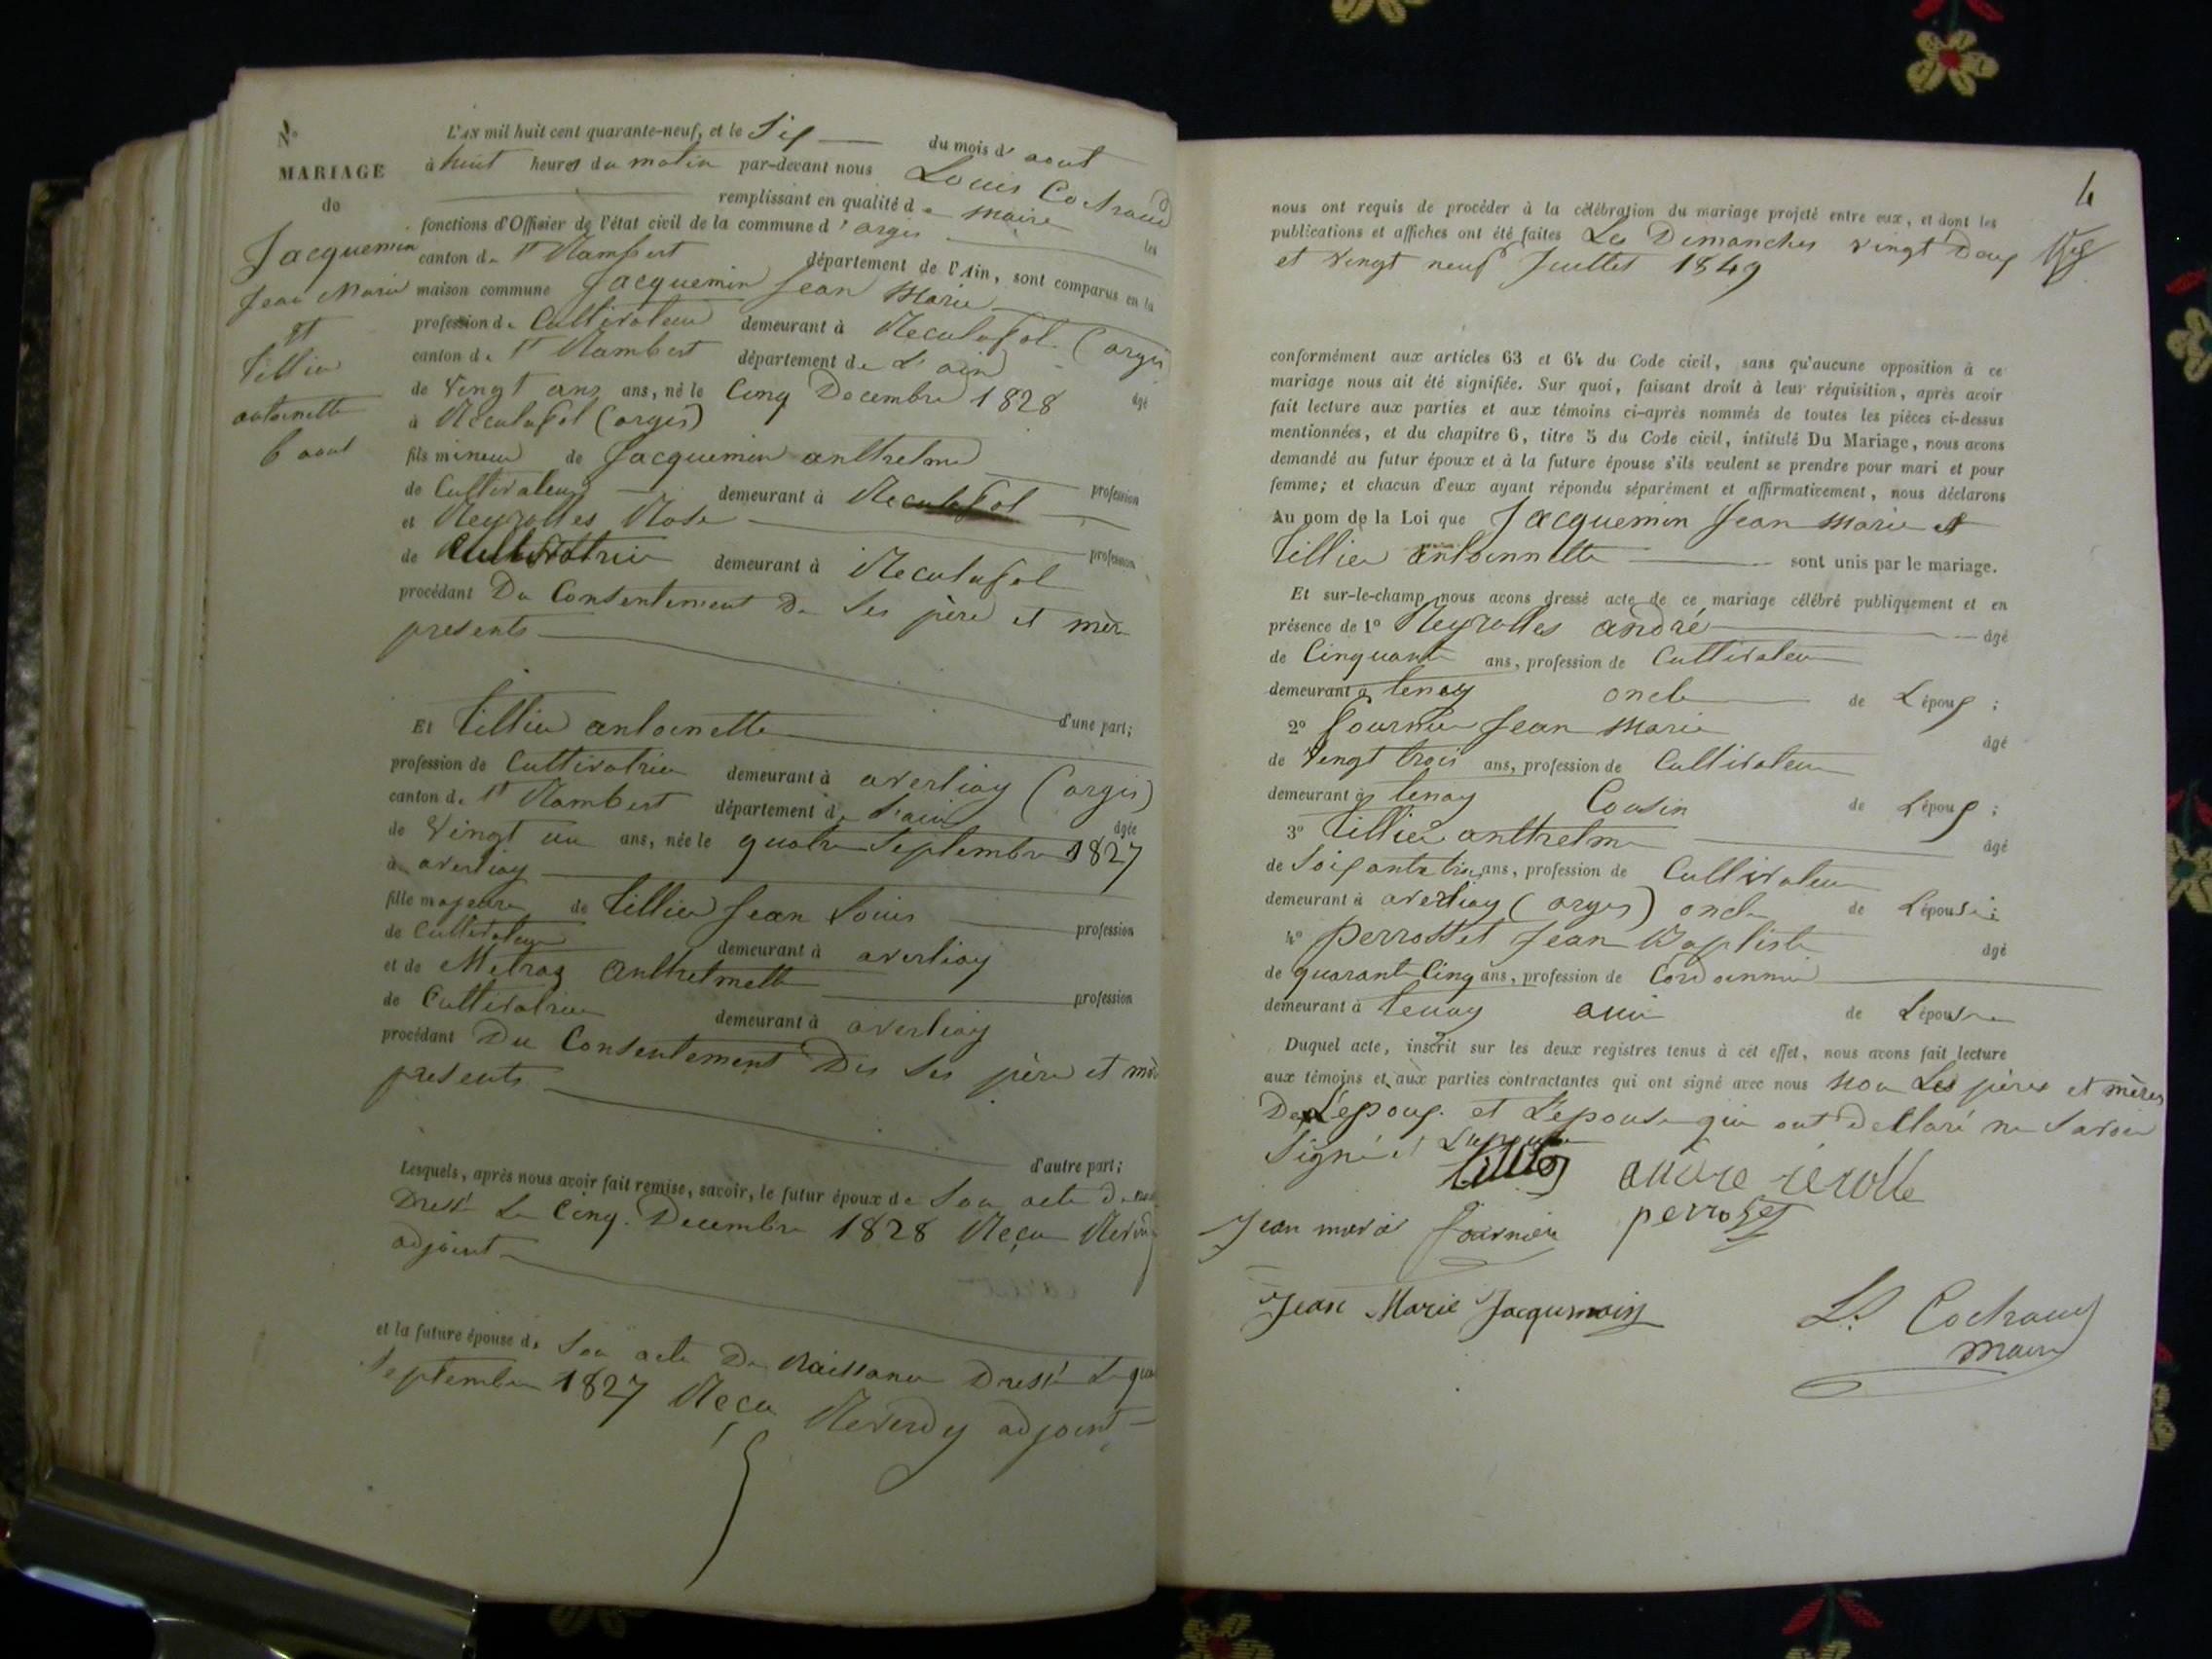 N°
MARIAGE
de
Jacquemin
Jean Marie
et
Tillier
antoinette
6 aout
L'AN mil huit cent quarante-neuf, et le Six du mois d' aout
à huit heures du matin par-devant nous Louis Cochaud
remplissant en qualité de maire les
fonctions d'Officier de l'état civil de la commune d' argis
canton de St Rambert département de l'Ain, sont comparus en la
maison commune Jacquemin Jean Marie
profession de Cultivateur demeurant à Reculafol (argis
canton de St Rambert département de L'ain âgé
de Vingt ans ans, né le Cinq Decembre 1828
à Reculafol (argis)
fils mineur de Jacquemin anthelme profession
de Cultivateur demeurant à Reculafol
et Reyrolles Rose profession
de Cultivatrice demeurant à Reculafol
procédant Du Consentement De Ses père et mère
presents
d'une part;
Et Tillier antoinette
profession de Cultivatrice demeurant à averliay (argis)
canton de St Rambert département de L'ain âgée
de Vingt un ans, née le quatre Septembre 1827
à averliay
fille majeure de Tillier Jean Louis profession
de Cultivateur demeurant à averliay
et de Metraz anthelmette profession
de Cultivatrice demeurant à averliay
procédant Du Consentement Des Ses père et mère
presents
d'autre part;
Lesquels, après nous avoir fait remise, savoir, le futur époux de Son acte de
Dressé Le Cinq Decembre 1828 Reçu Reverdy
adjoint
et la future épouse de Son acte De Naissance Dressé Le
Septembre 1827 Reçu Reverdy adjoint
4
nous ont requis de procéder à la célébration du mariage projeté entre eux, et dont les
publications et affiches ont été faites Les Dimanches vingt Deux
et Vingt neuf Juillet 1849
conformément aux articles 63 et 64 du Code civil, sans qu'aucune opposition à ce
mariage nous ait été signifiée. Sur quoi, faisant droit à leur réquisition, après avoir
fait lecture aux parties et aux témoins ci-après nommés de toutes les pièces ci-dessus
mentionnées, et du chapitre 6, titre 5 du Code civil, intitulé Du Mariage, nous avons
demandé au futur époux et à la future épouse s'ils veulent se prendre pour mari et pour
femme; et chacun d'eux ayant répondu séparément et affirmativement, nous déclarons
Au nom de la Loi que Jacquemin Jean Marie et
Tillier antoinnette sont unis par le mariage.
Et sur-le-champ nous avons dressé acte de ce mariage célébré publiquement et en
présence de 1° Reyrolles andré âgé
de Cinquante ans, profession de Cultivateur
demeurant à tenay oncle de L'époux ;
2° fournier Jean Marie âgé
de Vingt trois ans, profession de Cultivateur
demeurant à tenay Cousin de L'époux ;
3° Tillier anthelme âgé
de Soixante trois ans, profession de Cultivateur
demeurant à averliay (argis) oncle de L'épouse ;
4° perrosset Jean Baptiste âgé
de quarante Cinq ans, profession de Cordonnier
demeurant à tenay ami de L'épouse
Duquel acte, inscrit sur les deux registres tenus à cet effet, nous avons fait lecture
aux témoins et aux parties contractantes qui ont signé avec nous Non Les pères et mères
De L'epoux et L'epouse qui ont declaré ne Savoir
Signé
andre rerolle
Jean marie fournier perroset
Jean Marie Jacqumain
Ls Cochaud
Maire